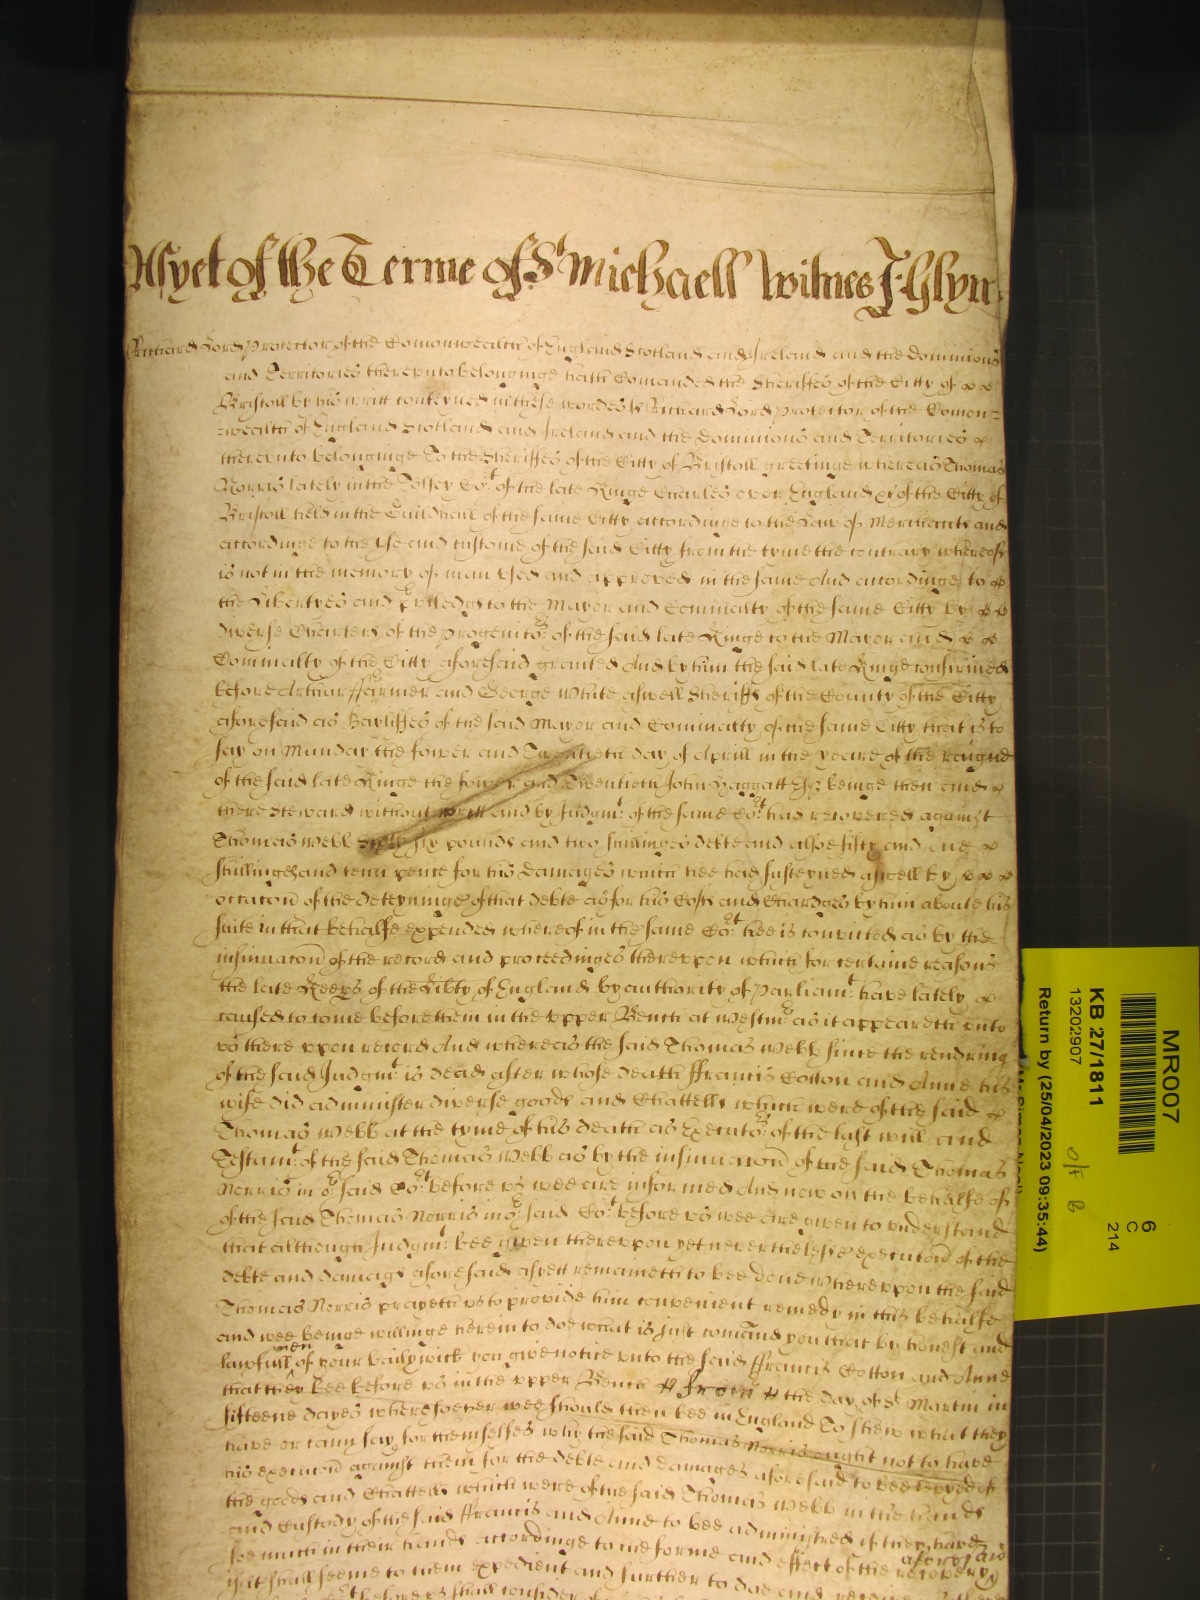 Asyet of the Terme of St Michaell Witnes J: Glyn
Richard Lord Protector of the Comonwealth of England Scotland and Ireland and the Dominions
and Territories thereunto belonginge hath Comanded the Sheriffes of the Citty of
Bristoll by his writt conteyned in these wordes Richard Lord Protector of the Comon=
=wealth of England Scotland and Ireland and the Dominions and Territories
thereunto belonginge To the Sheriffes of the Citty of Bristoll greetinge whereas Thomas
Norris lately in the Tolsey Cort of the late Kinge Charles over England &c of the Citty of
Bristoll held in the Guildhall of the same Citty accordinge to the Law of Merchants and
accordinge to the use and custome of the said Citty from the tyme the contrary whereof
is not in the memory of man used and approved in the same And accordinge to
the Libertyes and priledgs to the Mayor and Cominalty of the same Citty by
diverse Charters of the progenitors of the said late Kinge to the Mayor and
Comminalty of the Citty aforesaid granted And by him the said late Kinge confirmed
before Arthur ffarmer and George White aswell Sheriffs of the County of the Citty
aforesaid as Bayliffes of the said Mayor and Cominalty of the same Citty that is to
say on Munday the fower and Twentieth day of Aprill in the yeare of the raigne
of the said late Kinge the fower and Twentieth John Haggatt Esqr beinge then and
there Steward without writt and by Judgmt of the same Cort had recovered against
Thomas Webb six pounds and two shillinges debte and alsoe fifty and one
shillings and tenn pence for his damages which hee had susteyned aswell by
occacon of the deteyninge of that debte as for his Costs and Chardges by him aboute his
suite in that behalfe expended whereof in the same Cort hee is convicted as by the
insinuacon of the record and proceedinges thereupon which for certaine reasons
the late Keeprs of the Libty of England by authority of Parliamt have lately
caused to come before them in the upper Bench at Westmr as it appeareth unto
us there upon record And whereas the said Thomas Webb since the rendring
of the said Judgmt is dead after whose death ffrancis Cotton and Anne his
wife did administer diverse goods and Chattells which were of the said
Thomas Webb at the tyme of his death as Executors of the last will and
Testamt of the said Thomas Webb as by the insinuacon of the said Thomas
Norris in or said Cort before us wee are informed And now on the behalfe of
of the said Thomas Norris in or said Cort before us wee are given to understand
that although Judgmt bee given thereupon yet neverthelesse execucon of the
debte and damags aforesaid asyett remaineth to bee done Whereupon the said
Thomas Norris prayeth us to provide him convenient remedy in this behalfe
and wee beinge willinge herein to doe what is just comand you that by honest and
lawfull men of your bailywick you give notice unto the said ffrancis Cotton and Anne
that they bee before us in the upper Bench from the day of St Martin in
fifteene dayes wheresoever wee should then bee in England To shew what they
have or cann say for themselves why the said Thomas Norris ought not to have
his execucon against them for the debte and damages aforesaid to bee levyed of
the goods and Chattells which were of the said Thomas Webb in the hands
and Custody of the said ffrancis and Anne to bee administred if they have
soe much in their hands accordinge to the forme and effect of the recovery aforesaid
if it shall seeme to them expedient and further to doe and receive
before us shall consider of
MR007
KB 27/1811
13202907
Return by (25/04/2023 09:35:44)
6
C
214